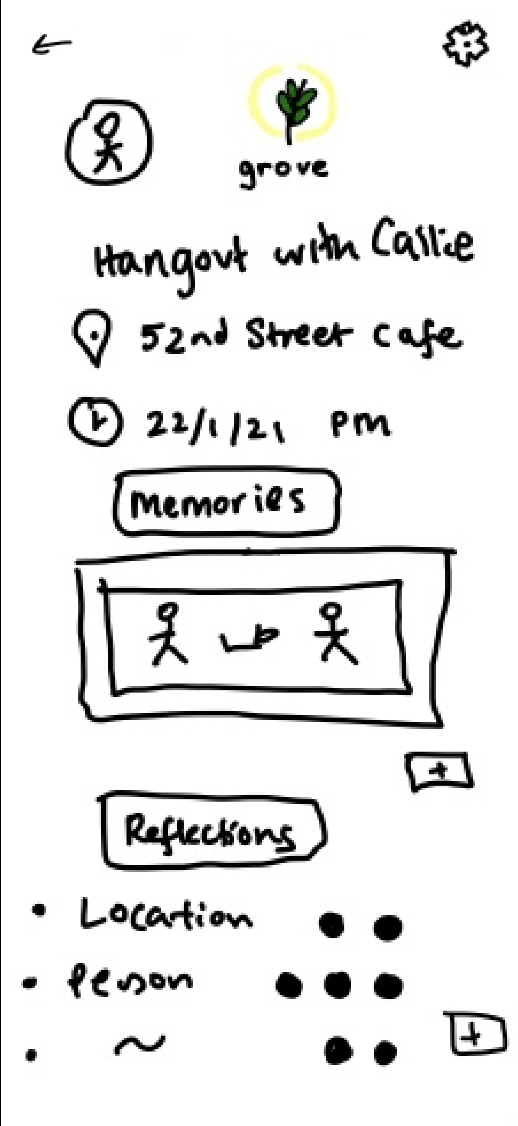 grove
Hangout with Callie
52nd Street Cafe
22/1/21 PM
Memories
+
Reflections
• Location
• Person
• ~
+